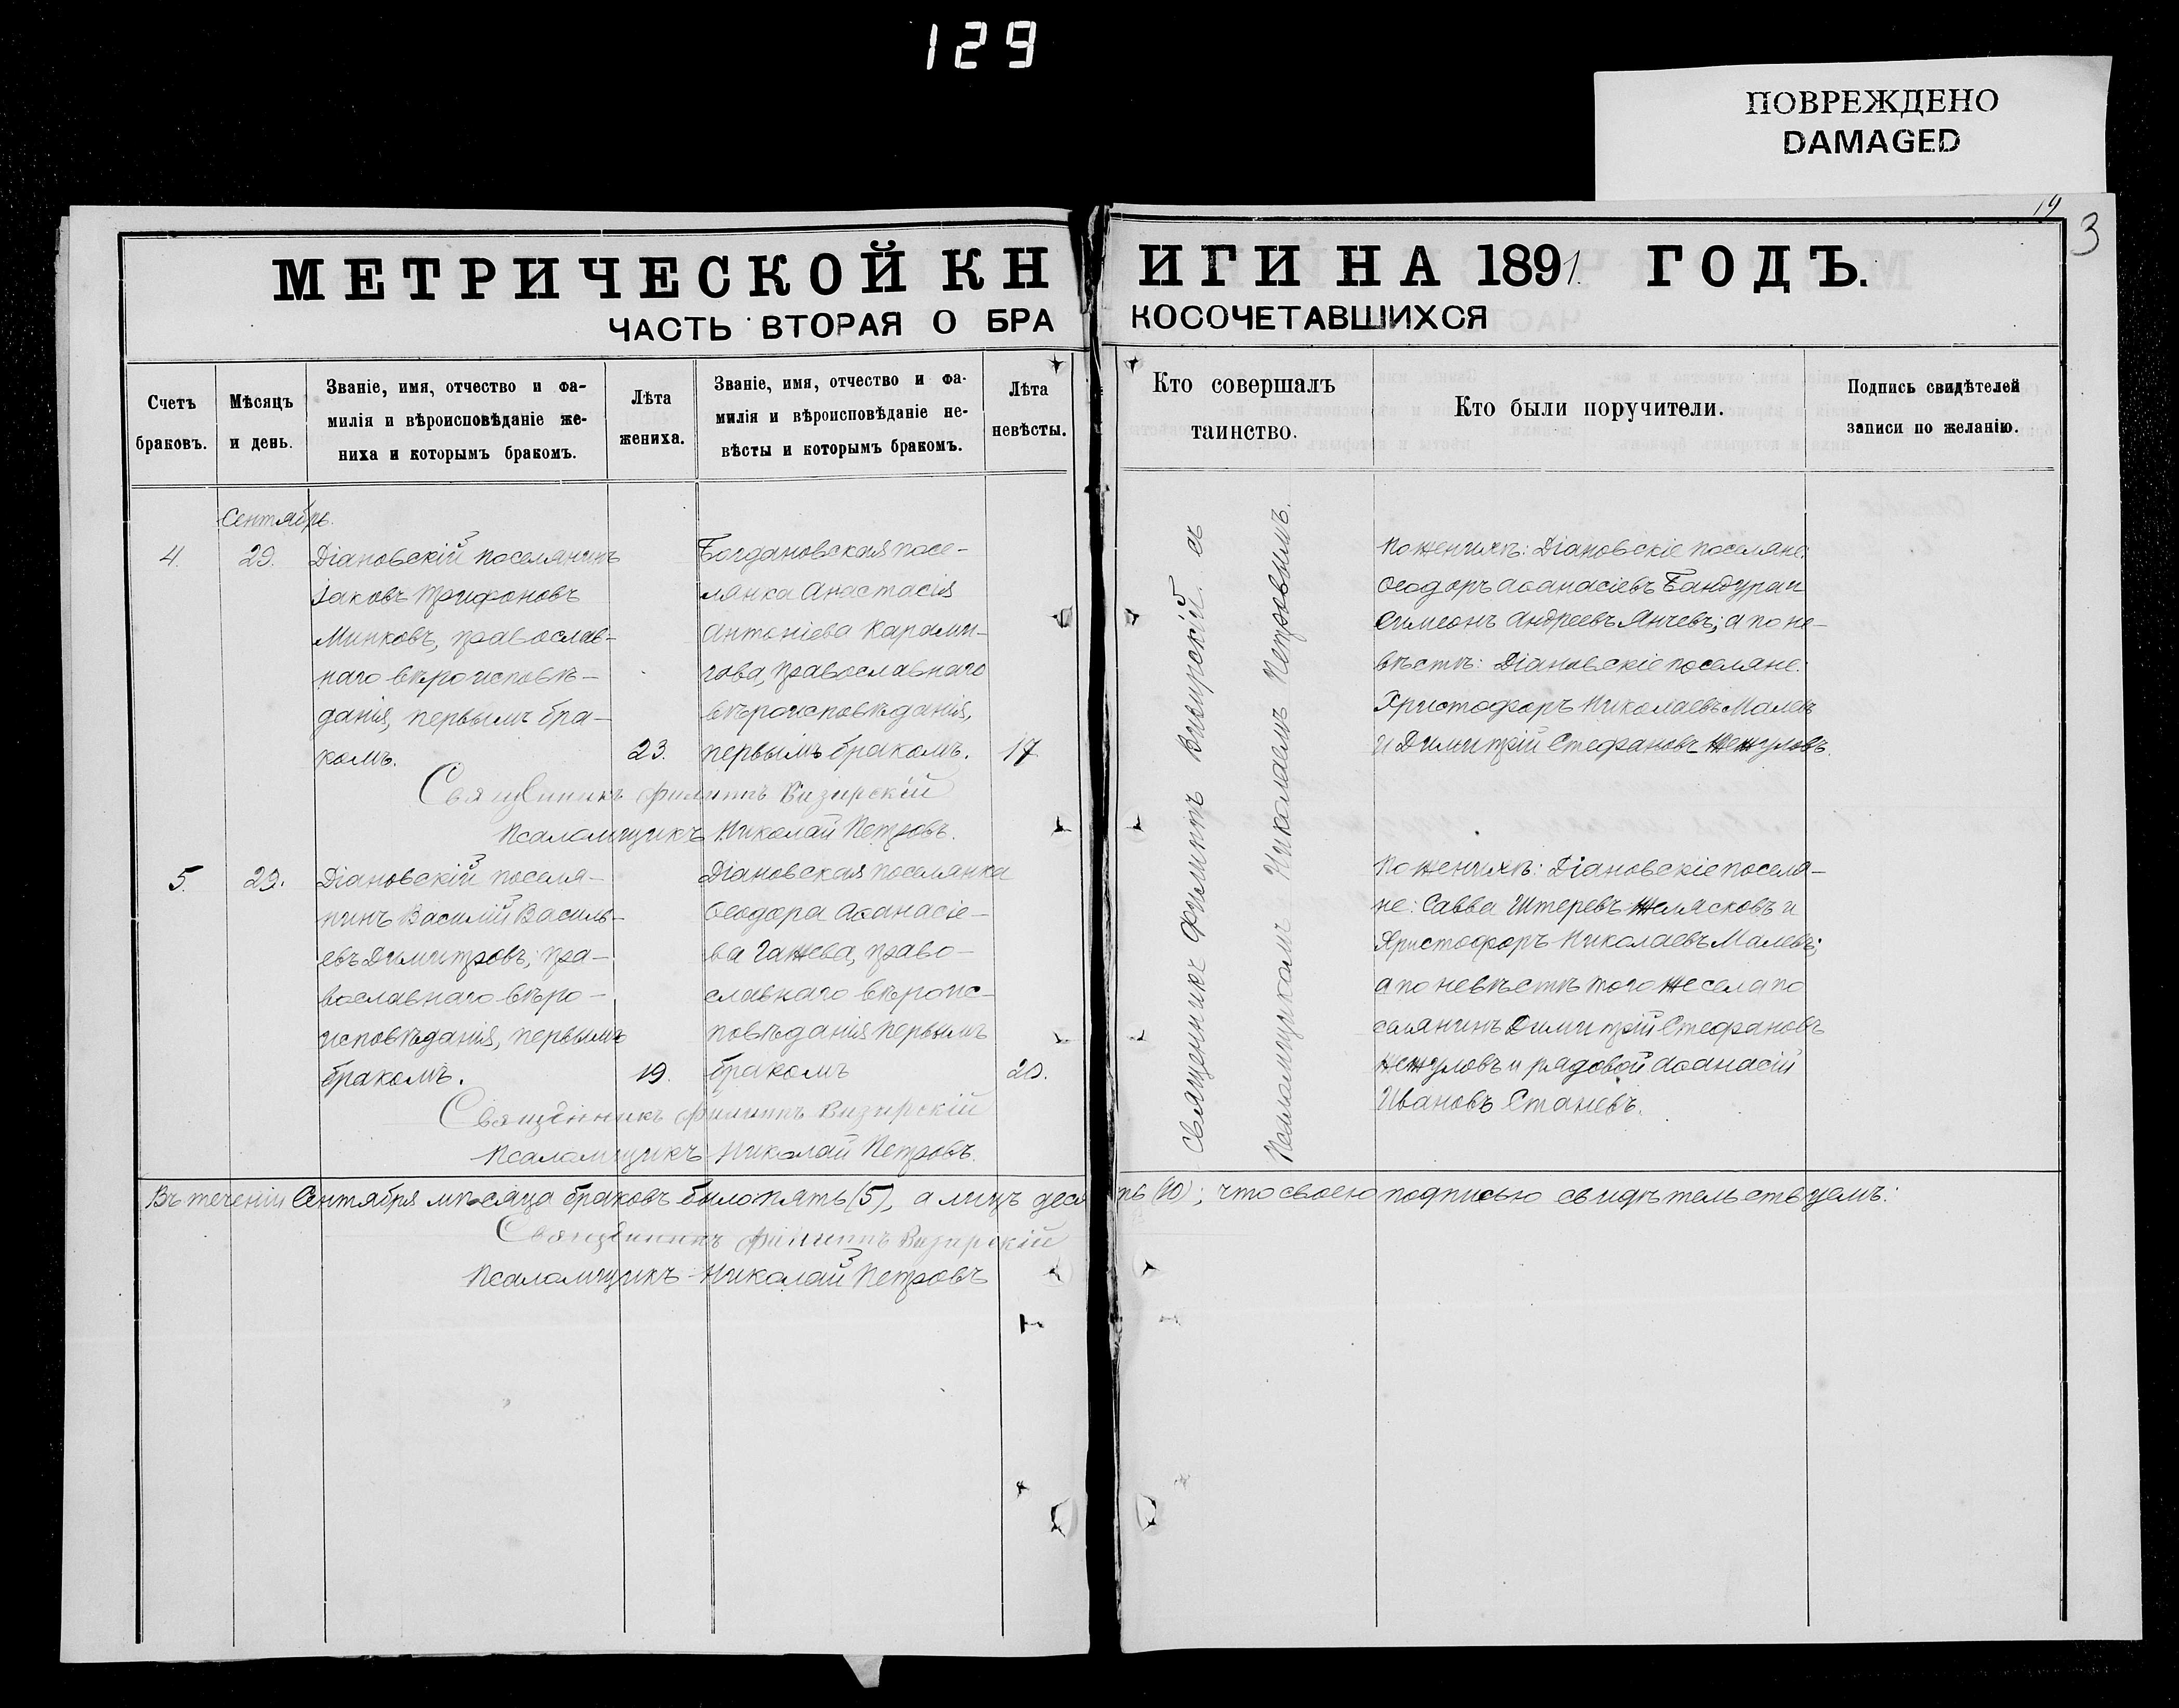 129
ПОВРЕЖДЕНО
DAMAGED
19
3
МЕТРИЧЕСКОЙ КНИГИ НА 1891 ГОДЪ.
ЧАСТЬ ВТОРАЯ О БРАКОСОЧЕТАВШИХСЯ
Счетъ
браковъ.
Мѣсяцъ
и день.
Званіе, имя, отчество и фа-
милія и вѣроисповѣданіе же-
ниха и которымъ бракомъ.
Лѣта
жениха.
Званіе, имя, отчество и фа-
милія и вѣроисповѣданіе не-
вѣсты и которымъ бракомъ.
Лѣта
невѣсты.
Кто совершалъ
таинство.
Кто были поручители.
Подпись свидѣтелей
записи по желанію.
Сентябрь.
4.
29.
Діановскій поселянинъ
Іаковъ Трифоновъ
Минковъ, православ-
наго вѣроисповѣ-
данія, первымъ бра-
комъ.
23.
Богдановская посе-
лянка Анастасія
Антоніева Карами-
гова, православнаго
вѣроисповѣданія,
первымъ бракомъ.
17
Священникъ Филиппъ Визирскій съ
Псаломщикомъ Николаемъ Петровымъ.
По женихѣ: Діановскіе поселяне:
Ѳеодоръ Аѳанасіевъ Бандура и
Симеонъ Андреевъ Янчевъ; а по не-
вѣстѣ: Діановскіе поселяне:
Христофоръ Николаевъ Малевъ
и Димитрій Стефановъ Жежуловъ.
Священникъ Филиппъ Визирскій
Псаломщикъ Николай Петровъ.
5.
29.
Діановскій поселя-
нинъ Василій Василь-
евъ Димитровъ; пра-
вославнаго вѣро-
исповѣданія, первымъ
бракомъ.
19.
Діановская поселянка
Ѳеодора Аѳанасіе-
ва Гажева, право-
славнаго вѣроис-
повѣданія первымъ
бракомъ
20.
По женихѣ: Діановскіе поселя-
не: Савва Штеревъ Желясковъ и
Христофоръ Николаевъ Малевъ;
а по невѣстѣ того же села по
селянинъ Димитрій Стефановъ
Жежуловъ и рядовой Аѳанасій
Ивановъ Станевъ.
Священникъ Филиппъ Визирскій
Псаломщикъ Николай Петровъ.
Въ теченіи Сентября мѣсяца браковъ было пять (5), а лицъ десять (10); что своею подписью свидѣтельствуемъ:
Священникъ Филиппъ Визирскій
Псаломщикъ Николай Петровъ